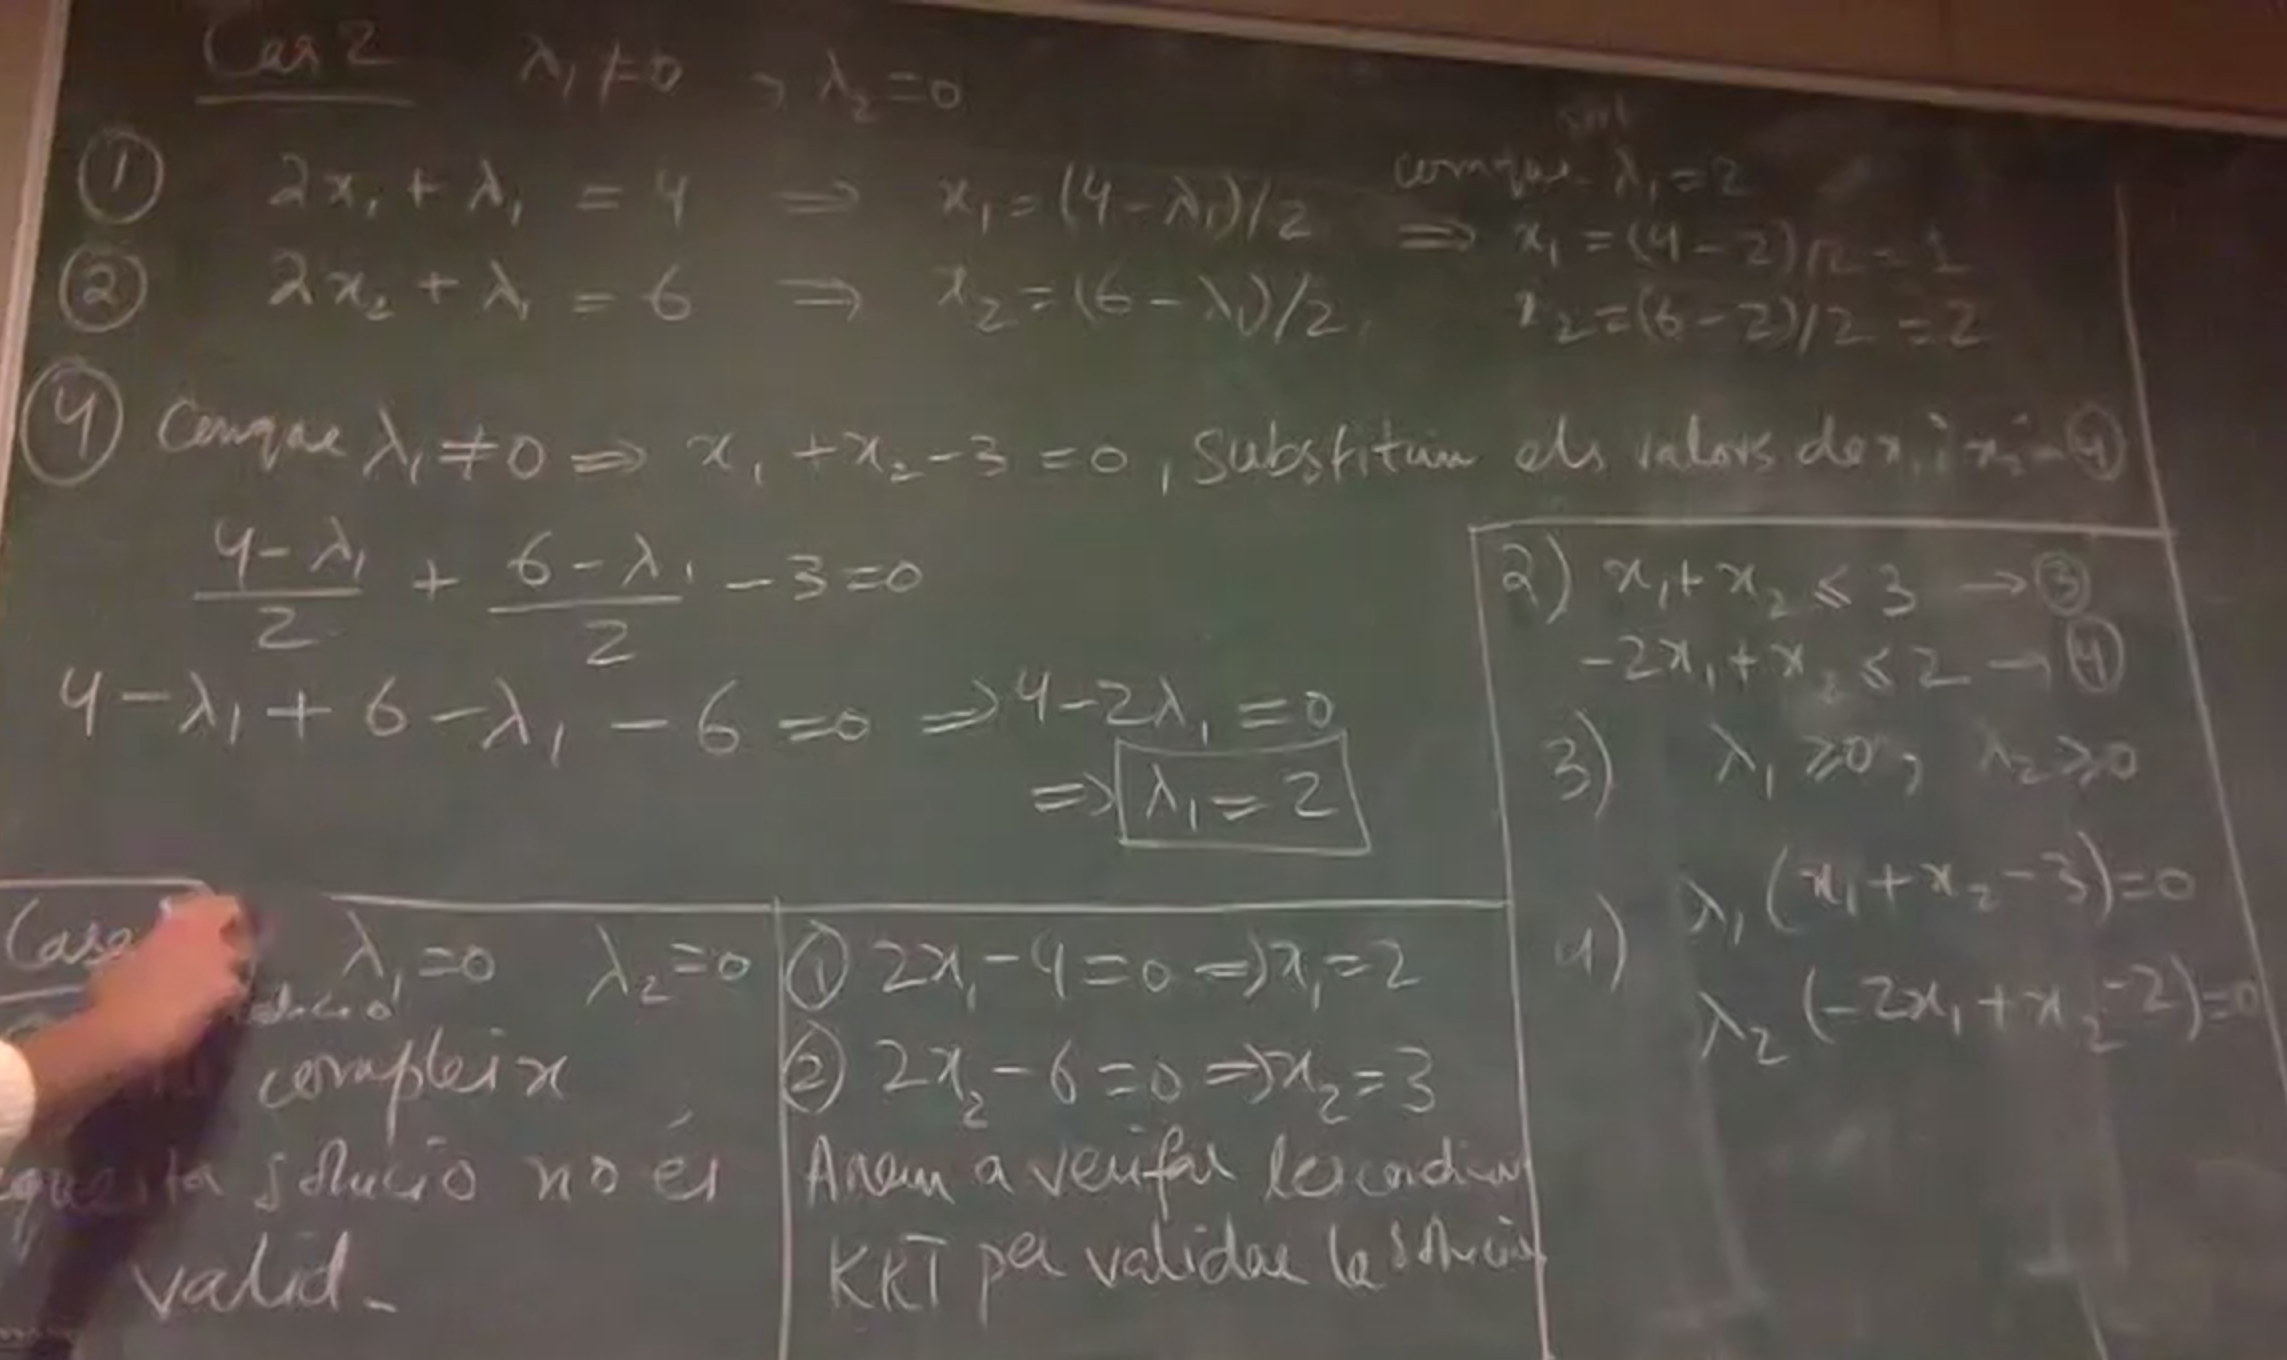 Cas 2 λ₁ ≠ 0 , λ₂ = 0
① 2x₁ + λ₁ = 4 ⇒ x₁ = (4 - λ₁)/2
② 2x₂ + λ₁ = 6 ⇒ x₂ = (6 - λ₁)/2
comque λ₁ = 2
⇒ x₁ = (4 - 2)/2 = 1
x₂ = (6 - 2)/2 = 2
④ Comque λ₁ ≠ 0 ⇒ x₁ + x₂ - 3 = 0 , substituim els valors de x₁ i x₂ ④
(4 - λ₁)/2 + (6 - λ₁)/2 - 3 = 0
4 - λ₁ + 6 - λ₁ - 6 = 0 ⇒ 4 - 2λ₁ = 0
⇒ λ₁ = 2
2) x₁ + x₂ ≤ 3 → ③
-2x₁ + x₂ ≤ 2 → ④
3) λ₁ ≥ 0 , λ₂ ≥ 0
4) λ₁ (x₁ + x₂ - 3) = 0
λ₂ (-2x₁ + x₂ - 2) = 0
λ₁ = 0 λ₂ = 0
compleix
solució no és
valid.
① 2x₁ - 4 = 0 ⇒ x₁ = 2
② 2x₂ - 6 = 0 ⇒ x₂ = 3
Anem a verifar les
KKT per validar la solució